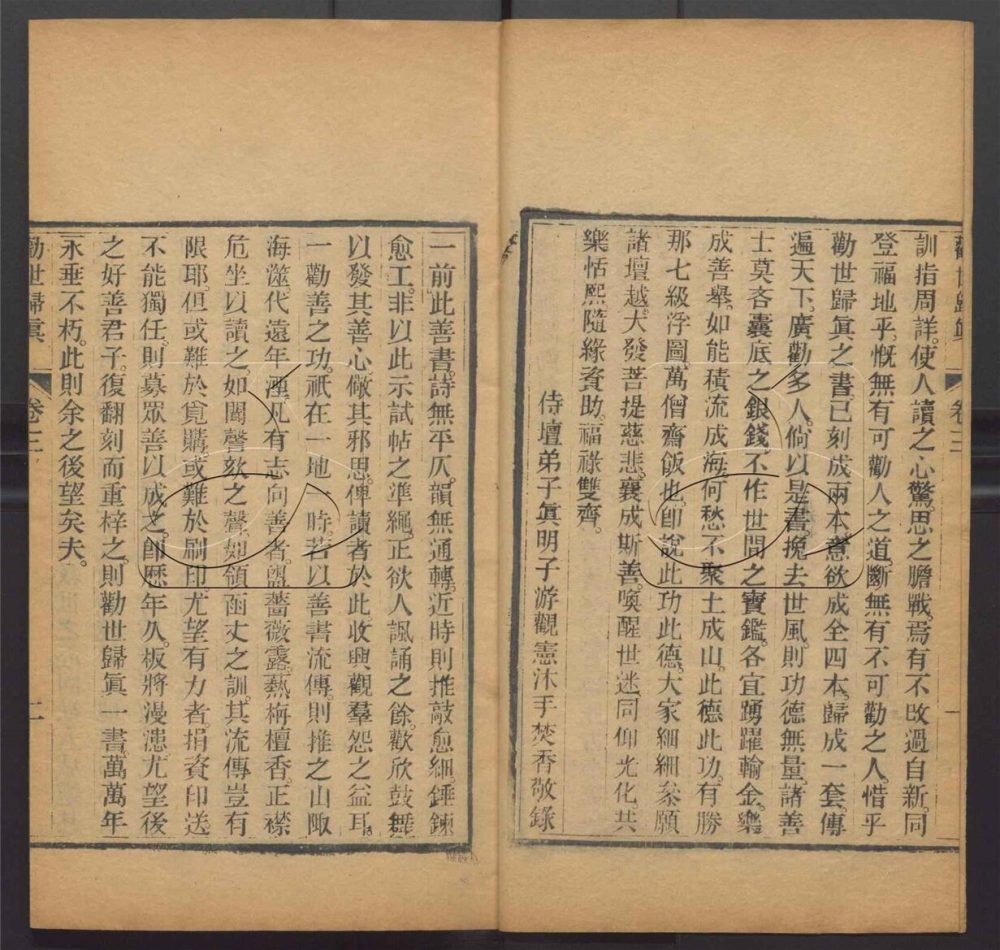 勸世歸眞 卷三 一
訓指周詳。使人讀之心驚。思之膽戰。焉有不改過自新。同
登福地乎。慨無有可勸人之道。斷無有不可勸之人。惜乎
勸世歸眞之書。已刻成兩本。意欲成全四本。歸成一套。傳
遍天下。廣勸多人。倘以是書。挽去世風。則功德無量。諸善
士莫吝囊底之銀錢。不作世間之寶鑑。各宜踴躍輸金。樂
成善舉。如能積流成海。何愁不聚土成山。此德此功。有勝
那七級浮圖。萬僧齋飯也。卽說此功此德。大家細細叅。願
諸壇越。大發菩提慈悲。襄成斯善。喚醒世迷。同仰光化。共
樂恬熙。隨緣資助。福祿雙齊。
侍壇弟子眞明子游觀憲沐手焚香敬錄
一前此善書。詩無平仄。韻無通轉。近時則推敲愈細。錘鍊
愈工。非以此示試帖之準繩。正欲人諷誦之餘。歡欣鼓舞
以發其善心。儆其邪思。俾讀者於此收興觀羣怨之益耳。
一勸善之功。祇在一地一時。若以善書流傳。則推之山陬
海澨。代遠年湮。凡有志向善者。盥薔薇露。爇栴檀香。正襟
危坐以讀之。如聞謦欬之聲。如領函丈之訓。其流傳豈有
限耶。但或難於覓購。或難於刷印。尤望有力者。捐資印送
不能獨任。則募眾善以成之。卽歷年久。板將漫漶。尤望後
之好善君子。復翻刻而重梓之。則勸世歸眞一書。萬萬年
永垂不朽。此則余之後望矣夫。
勸世歸眞 卷三 二